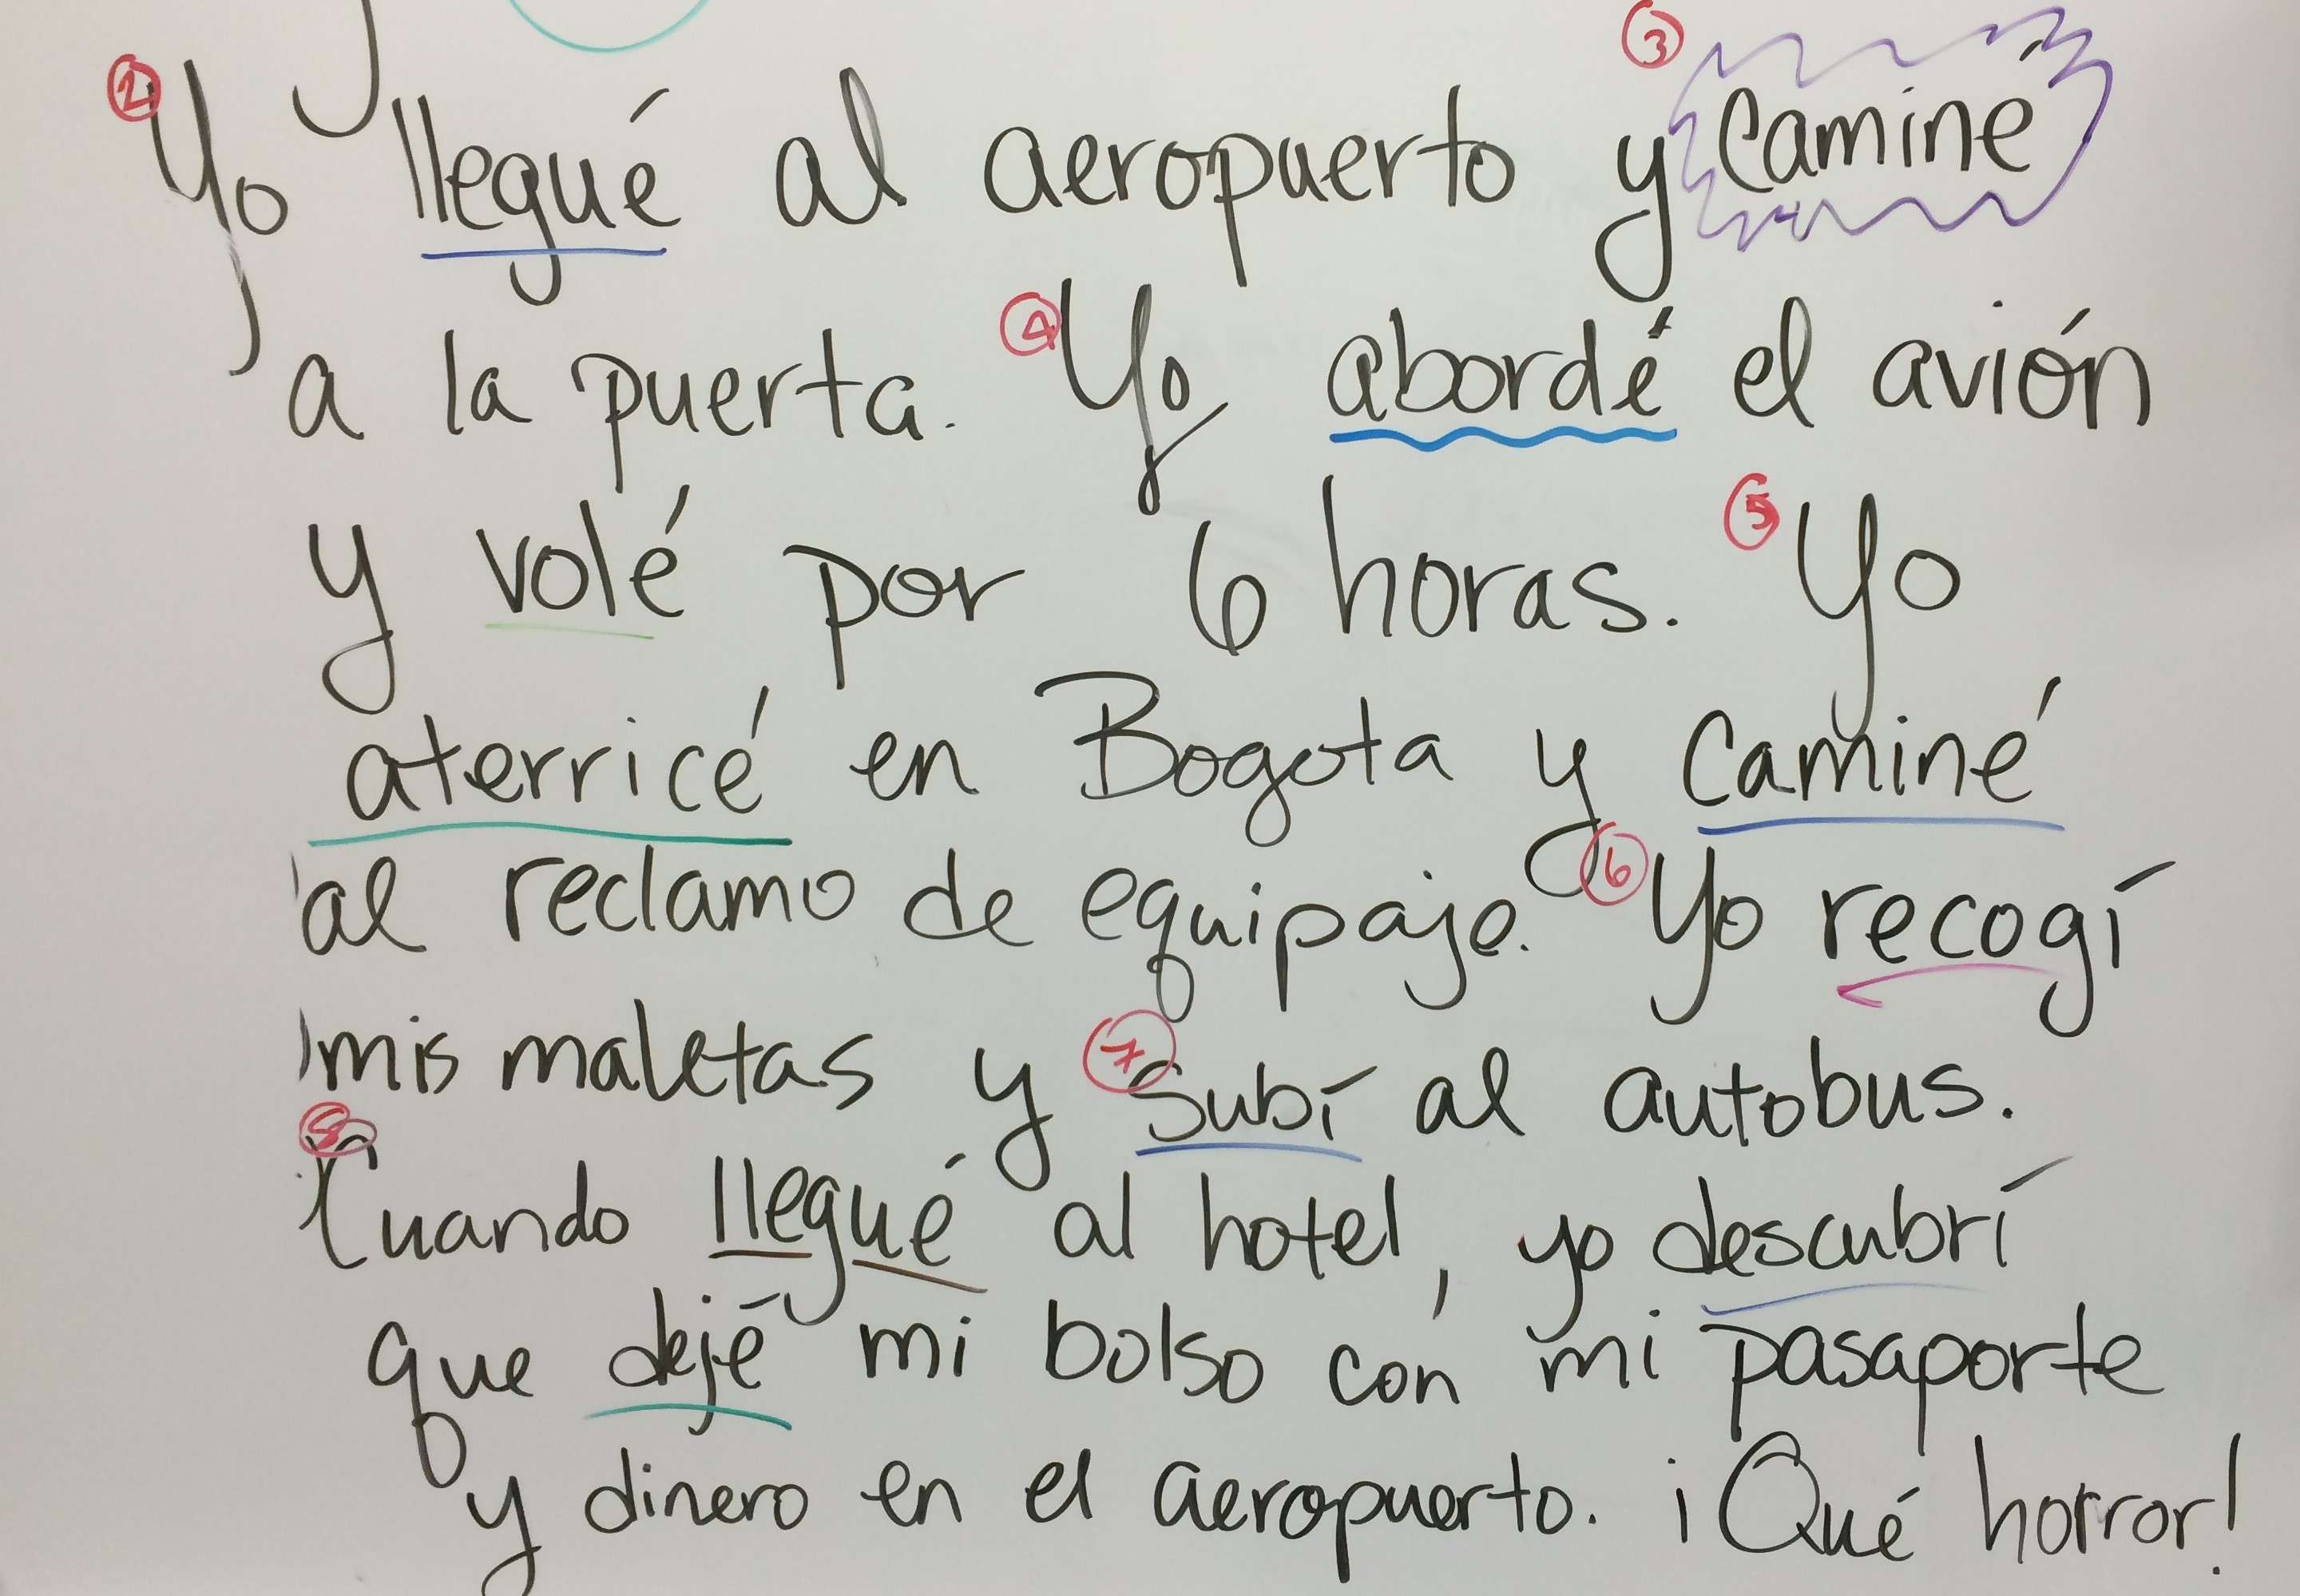 ② Yo llegué al aeropuerto y ③ caminé
a la puerta. ④ Yo abordé el avión
y volé por 6 horas. ⑤ Yo
aterricé en Bogota y caminé
al reclamo de equipaje. ⑥ Yo recogí
mis maletas y ⑦ subí al autobus.
⑧ Cuando llegué al hotel, yo descubrí
que dejé mi bolso con mi pasaporte
y dinero en el aeropuerto. ¡Qué horror!